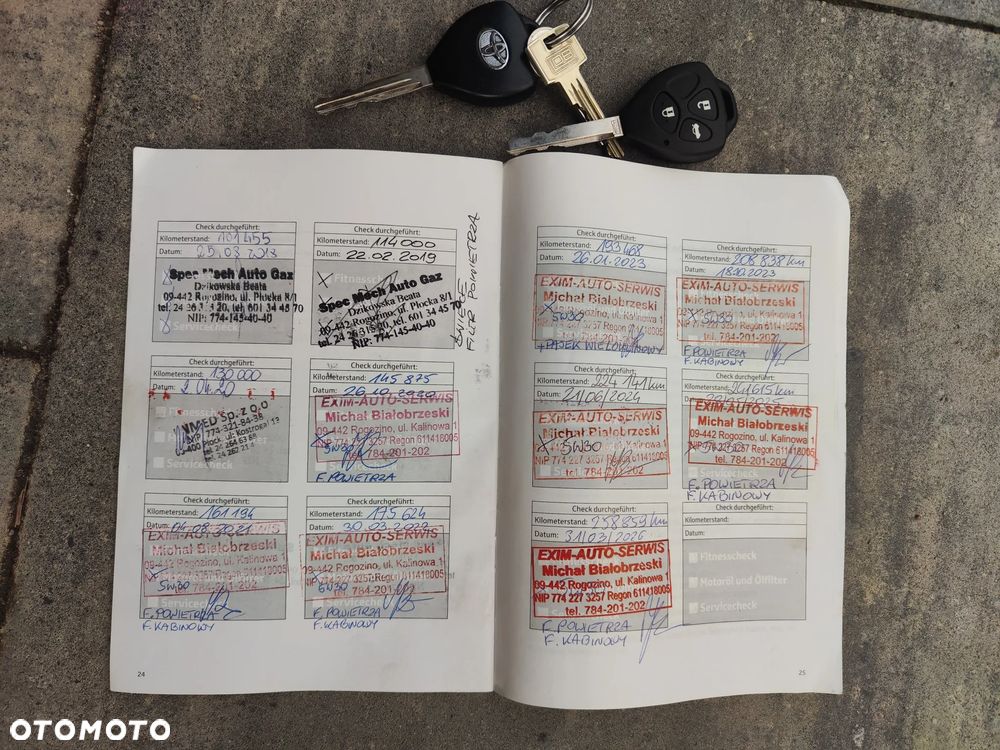 Check durchgeführt:
Kilometerstand: 101455
Datum: 25.03
Fitnesscheck
Spec Mech Auto Gaz
Dzikowska Beata
09-442 Rogozino, ul. Płocka 8/1
tel. 24 26 20, tel. 601 34 45 70
NIP: 774-145-40-40
Servicecheck
Check durchgeführt:
Kilometerstand: 114000
Datum: 22.02.2019
X Fitnesscheck
Spec Mech Auto Gaz
Dzikowska Beata
09-442 Rogozino, ul. Płocka 8/1
tel. 24 26 20, tel. 601 34 45 70
NIP: 774-145-40-40
FILTR POWIETRZA
Check durchgeführt:
Kilometerstand: 130 000
Datum: 2.04.20
Fitnesscheck
Sp. z o.o
NIP 774-321-84-38
Płock, ul. Kostrogaj 13
tel. 24 264 63 84
tel. 24 262 21
Servicecheck
Check durchgeführt:
Kilometerstand: 145 875
Datum: 26.10.2020
EXIM-AUTO-SERWIS
Michał Białobrzeski
09-442 Rogozino, ul. Kalinowa 1
NIP 774 227 3257 Regon 611418005
tel. 784-201-202
5W30
Servicecheck
F. POWIETRZA
Check durchgeführt:
Kilometerstand: 161 194
Datum: 04.08.2021
EXIM-AUTO-SERWIS
Michał Białobrzeski
09-442 Rogozino, ul. Kalinowa 1
NIP 774 227 3257 Regon 611418005
5W30 tel. 784-201-202
Servicecheck
F. POWIETRZA
F. KABINOWY
Check durchgeführt:
Kilometerstand: 175 624
Datum: 30.03.2022
EXIM-AUTO-SERWIS
Michał Białobrzeski
09-442 Rogozino, ul. Kalinowa 1
NIP 774 227 3257 Regon 611418005
5W30 tel. 784-201-202
Servicecheck
F. POWIETRZA
F. KABINOWY
24
Check durchgeführt:
Kilometerstand: 193468
Datum: 26.01.2023
EXIM-AUTO-SERWIS
Michał Białobrzeski
09-442 Rogozino, ul. Kalinowa 1
5W30
NIP 774 227 3257 Regon 611418005
tel. 784-201-202
+ PASEK WIELOWKLINOWY
Check durchgeführt:
Kilometerstand: 208 838 km
Datum: 18.10.2023
EXIM-AUTO-SERWIS
Michał Białobrzeski
09-442 Rogozino, ul. Kalinowa 1
NIP 774 227 3257 Regon 611418005
tel. 784-201-202
F. POWIETRZA
F. KABINOWY
Check durchgeführt:
Kilometerstand: 224 141 km
Datum: 21/06/2024
EXIM-AUTO-SERWIS
Michał Białobrzeski
09-442 Rogozino, ul. Kalinowa 1
5W30
NIP 774 227 3257 Regon 611418005
tel. 784-201-202
Check durchgeführt:
Kilometerstand: 241615 km
EXIM-AUTO-SERWIS
Michał Białobrzeski
09-442 Rogozino, ul. Kalinowa 1
NIP 774 227 3257 Regon 611418005
tel. 784-201-202
F. POWIETRZA
F. KABINOWY
Check durchgeführt:
Kilometerstand: 258 859 km
Datum: 31/03/2026
EXIM-AUTO-SERWIS
Michał Białobrzeski
09-442 Rogozino, ul. Kalinowa 1
NIP 774 227 3257 Regon 611418005
tel. 784-201-202
F. POWIETRZA
F. KABINOWY
Check durchgeführt:
Kilometerstand:
Datum:
Fitnesscheck
Motoröl und Ölfilter
Servicecheck
25
OTOMOTO